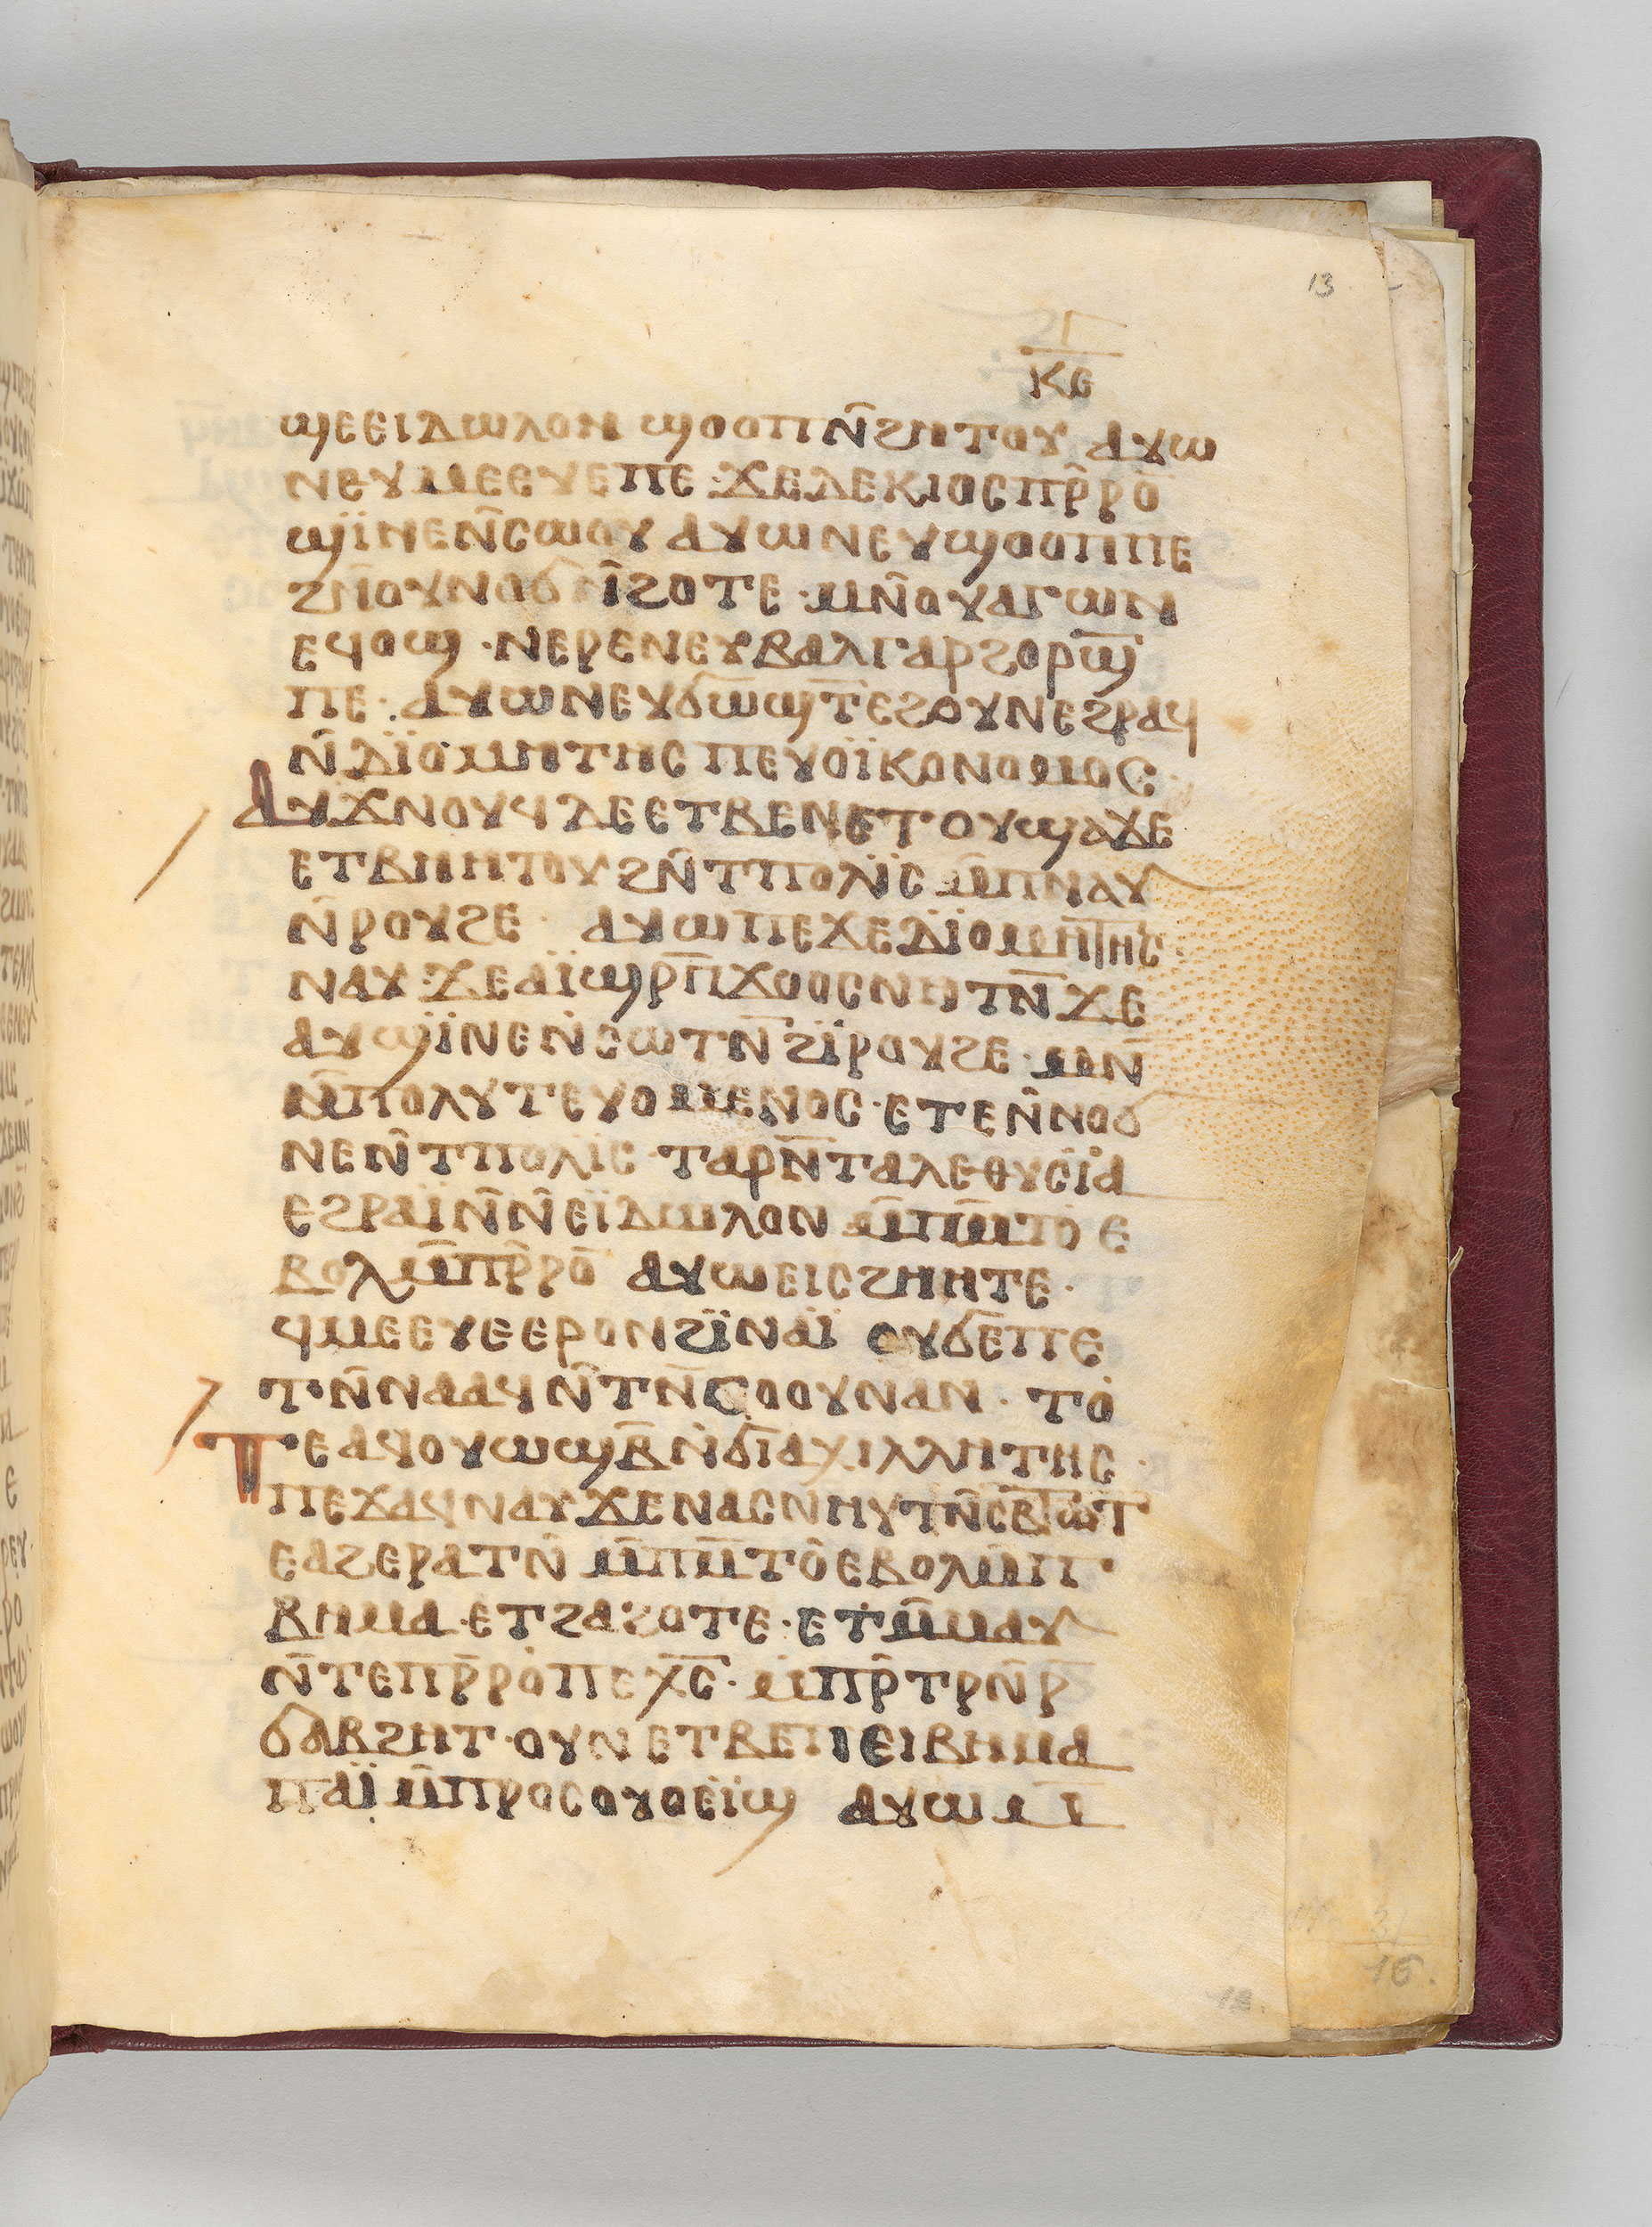 13
ⲕⲉ
ϣⲉⲉⲓⲇⲱⲗⲟⲛ ϣⲟⲟⲡⲛ̄ϩⲏⲧⲟⲩ ⲁⲩⲱ
ⲛⲉⲩⲙⲉⲉⲩⲉⲡⲉ·ϫⲉⲇⲉⲕⲓⲟⲥⲡⲣ̄ⲣⲟ
ϣⲓ̈ⲛⲉⲛ̄ⲥⲱⲟⲩ ⲁⲩⲱⲛⲉⲩϣⲟⲟⲡⲡⲉ
ϩⲛ̄ⲟⲩⲛⲟϭ ⲛ̄ϩⲟⲧⲉ·ⲙⲛ̄ⲟⲩⲁⲅⲱⲛ
ⲉϥⲟϣ·ⲛⲉⲣⲉⲛⲉⲩⲃⲁⲗⲅⲁⲣϩⲟⲣϣ̄
ⲡⲉ·ⲁⲩⲱⲛⲉⲩϭⲱ̄ϣⲧ̄ⲉϩⲟⲩⲛⲉϩⲣⲁϥ
ⲛ̄ⲇⲓ̈ⲟⲙⲏⲧⲏⲥⲡⲉⲩⲟⲓ̈ⲕⲟⲛⲟⲙⲟⲥ·
ⲁⲩϫⲛⲟⲩϥⲇⲉⲉⲧⲃⲉⲛⲉⲧⲟⲩϣⲁϫⲉ
ⲉⲧⲃⲏⲏⲧⲟⲩϩⲛ̄ⲧⲡⲟⲗⲓ̈ⲥ ⲙ̄ⲡⲛⲁⲩ
ⲛ̄ⲣⲟⲩϩⲉ· ⲁⲩⲱⲡⲉϫⲉⲇⲓ̈ⲟⲙⲏⲧⲏⲥ·
ⲛⲁⲩ·ϫⲉⲁⲓ̈ϣⲣ̄ⲡϫⲟⲟⲥⲛⲏⲧⲛ̄ϫⲉ
ⲁⲩϣⲓ̈ⲛⲉⲛ̄ⲥⲱⲧⲛ̄ϩⲓ̈ⲣⲟⲩϩⲉ·ⲙⲛ̄
ⲙ̄ⲡⲟⲗⲩⲧⲉⲩⲟⲙⲉⲛⲟⲥ·ⲉⲧⲉⲛ̄ⲛⲟϭ
ⲛⲉⲛ̄ⲧⲡⲟⲗⲓ̈ⲥ·ⲧⲁⲣⲛ̄ⲧⲁⲗⲉⲑⲩⲥⲓ̈ⲁ
ⲉϩⲣⲁⲓ̈ⲛ̄ⲛ̄ⲉⲓ̈ⲇⲱⲗⲟⲛ ⲙ̄ⲡⲙ̄ⲧⲟ ⲉ
ⲃⲟⲗⲙ̄ⲡⲣ̄ⲣⲟ ⲁⲩⲱⲉⲓⲥϩⲏⲏⲧⲉ·
ϥⲙⲉⲉⲩⲉⲉⲣⲟⲛϩⲓ̈ⲛⲁⲓ̈ ⲟⲩϭⲉ̄ⲡⲉ
ⲧⲛ̄ⲛⲁⲁϥⲛ̄ⲧⲛ̄ⲥⲟⲟⲩⲛⲁⲛ· ⲧⲟ
ⲧⲉⲁϥⲟⲩⲱϣⲃ̄ⲛ̄ϭⲓⲁⲭⲓⲗⲗⲏⲧⲏⲥ·
ⲡⲉϫⲁϥⲛⲁⲩϫⲉⲛⲁⲥⲛⲏⲩⲧⲛ̄ⲥⲃ̄ⲧⲱⲧ
ⲉⲁϩⲉⲣⲁⲧⲛ̄ ⲙ̄ⲡⲙ̄ⲧⲟⲉⲃⲟⲗⲙ̄ⲡ
ⲃⲏⲙⲁ·ⲉⲧϩⲁϩⲟⲧⲉ·ⲉⲧⲙ̄ⲙⲁⲩ
ⲛ̄ⲧⲉⲡⲣ̄ⲣⲟⲡⲉⲭ̄ⲥ̄·ⲙ̄ⲡⲣ̄ⲧⲣⲛ̄ⲣ̄
ϭⲁⲃϩⲏⲧ·ⲟⲩⲛⲉⲧⲃⲉⲡⲉⲓⲃⲏⲙⲁ
ⲡⲁⲓ̈ⲙ̄ⲡⲣⲟⲥⲟⲩⲟⲉⲓ̈ϣ ⲁⲩⲱ
16.